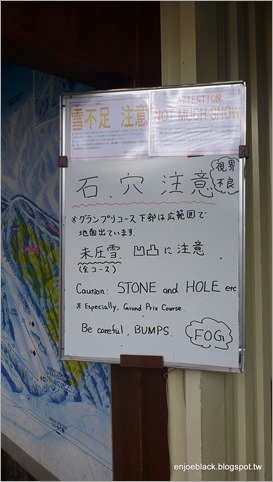 雪不足 注意
ATTENTION
NOT MUCH SNOW
石、穴 注意
視界
不良
※グランプリコース下部は広範囲で
地面出ています。
未圧雪、凹凸に注意
(全コース)
Caution: STONE and HOLE etc
※ Especially, Grand Prix Course.
Be careful, BUMPS.
FOG
enjoeblack.blogspot.tw